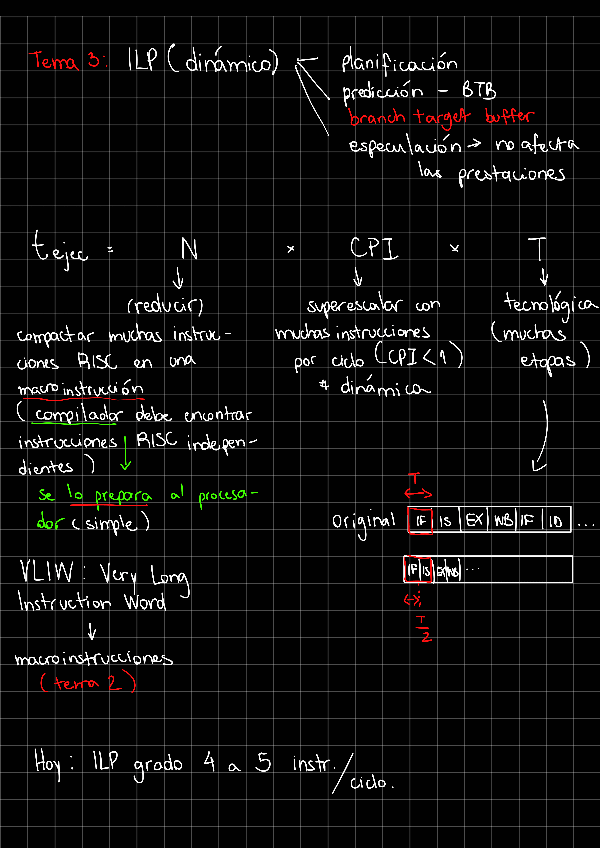 Tema 3: ILP (dinámico)
planificación
predicción - BTB
branch target buffer
especulación → no afecta
las prestaciones
tejec = N × CPI × T
(reducir)
compactar muchas instruc-
ciones RISC en una
macroinstrucción
(compilador debe encontrar
instrucciones RISC indepen-
dientes)
se lo prepara al procesa-
dor (simple)
VLIW: Very Long
Instruction Word
macroinstrucciones
(tema 2)
superescalar con
muchas instrucciones
por ciclo (CPI < 1)
* dinámica
tecnológica
(muchas
etapas)
T
original IF IS EX WB IF ID ...
IF IS EX WB ...
T/2
Hoy: ILP grado 4 a 5 instr./ciclo.